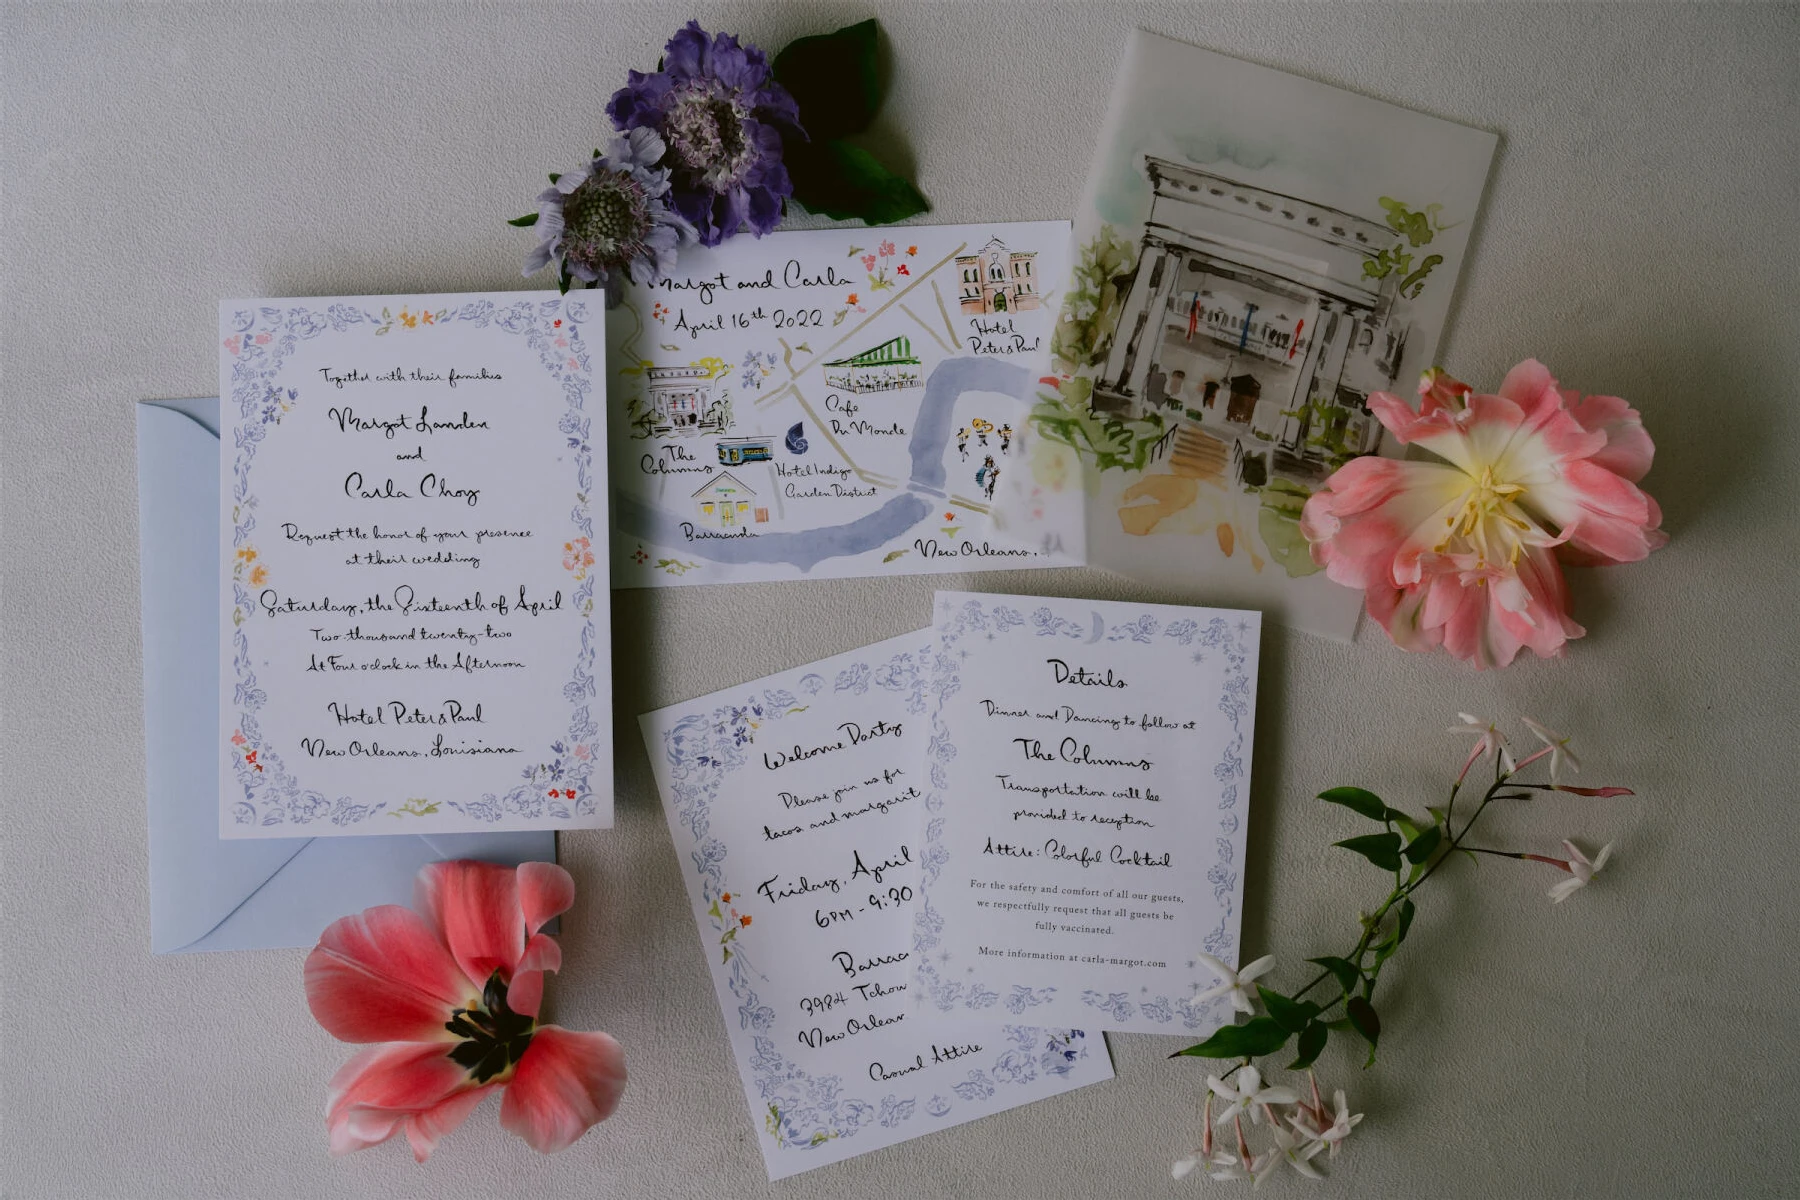 Together with their families
Margot Landen
and
Carla Choy
Request the honor of your presence
at their wedding
Saturday, the Sixteenth of April
Two thousand twenty-two
At Four o'clock in the Afternoon
Hotel Peter & Paul
New Orleans, Louisiana
Margot and Carla
April 16th 2022
Hotel
Peter & Paul
Cafe
Du Monde
The
Columns
Hotel Indigo
Garden District
Barracuda
New Orleans,
Welcome Party
Please join us for
tacos and margarit
Friday, April
6PM - 9:30
Barrac
3984 Tchou
New Orlean
Casual Attire
Details
Dinner and Dancing to follow at
The Columns
Transportation will be
provided to reception
Attire: Colorful Cocktail
For the safety and comfort of all our guests,
we respectfully request that all guests be
fully vaccinated.
More information at carla-margot.com